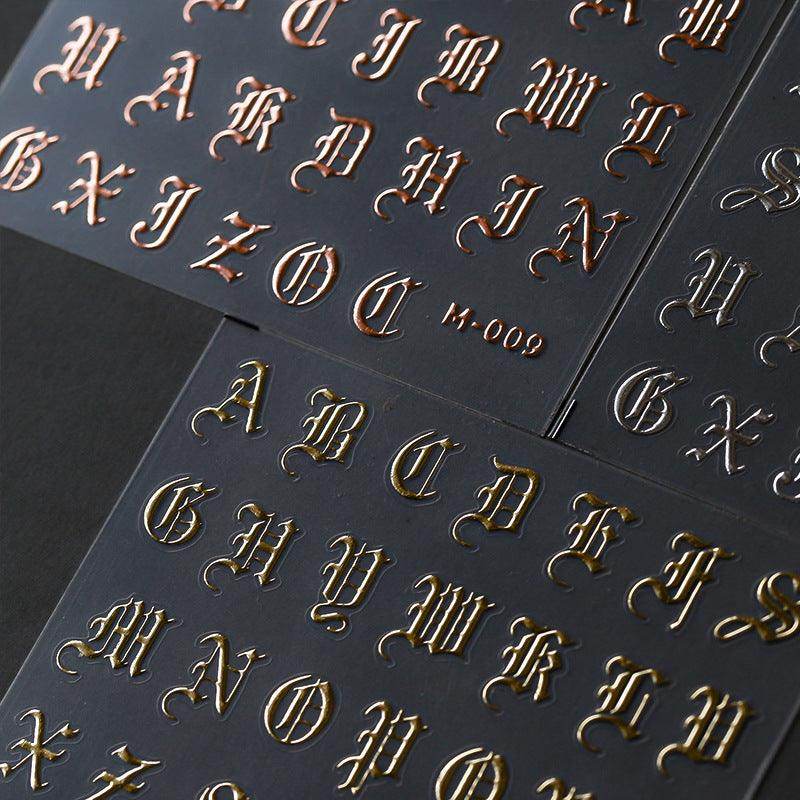 B
C I B W L
U A K D H I N
G X I Z O C M-009
S
U
G X
A B C D E F S
G H Y W K L U
M N O P O
X Z